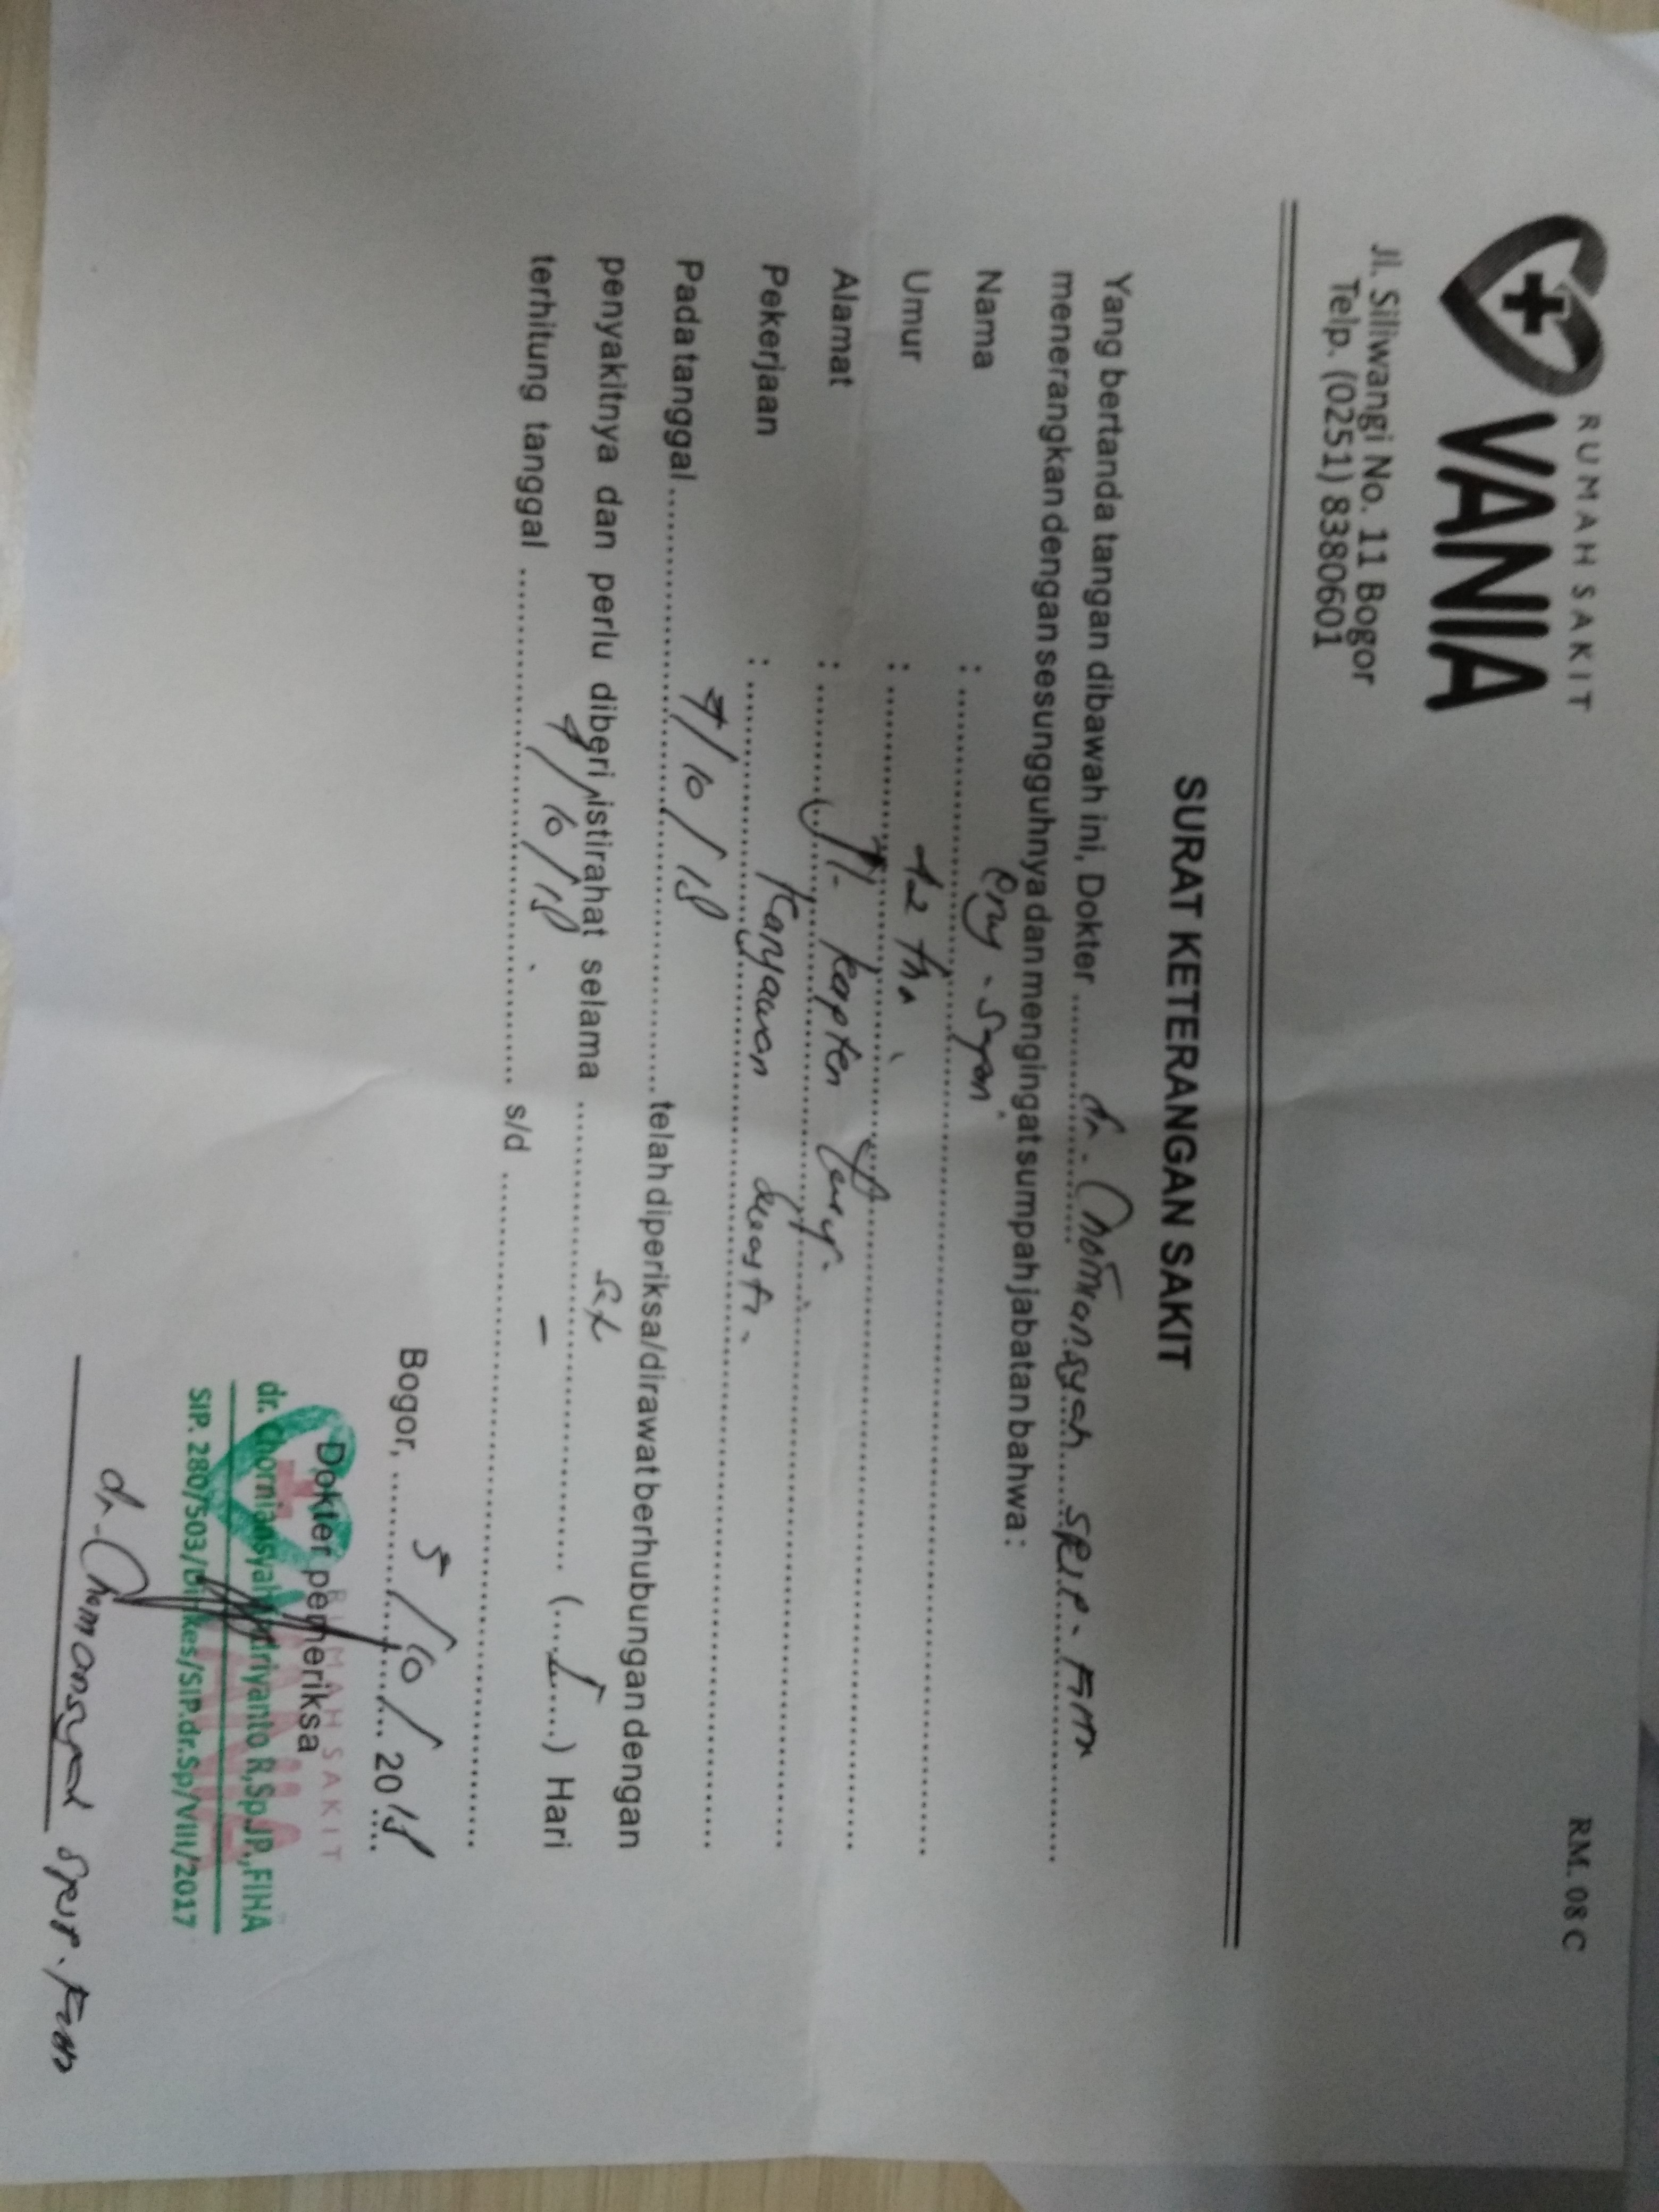 RUMAH SAKIT
VANIA
Jl. Siliwangi No. 11 Bogor
Telp. (0251) 8380601
RM. 08 C
SURAT KETERANGAN SAKIT
Yang bertanda tangan dibawah ini, Dokter dr.
menerangkan dengan sesungguhnya dan mengingat sumpah jabatan bahwa :
Nama :
Umur : 42 th
Alamat : Jl. kapten
Pekerjaan : Karyawan
Pada tanggal /10/18 telah diperiksa/dirawat berhubungan dengan
penyakitnya dan perlu diberi istirahat selama (...1...) Hari
terhitung tanggal /10/18 s/d -
Bogor, 5/10/2018
Dokter pemeriksa
RUMAH SAKIT
VANIA
dr. R,SpJP.,FIHA
SIP. 280/503/Dinkes/SIP.dr.Sp/VIII/2017
dr.